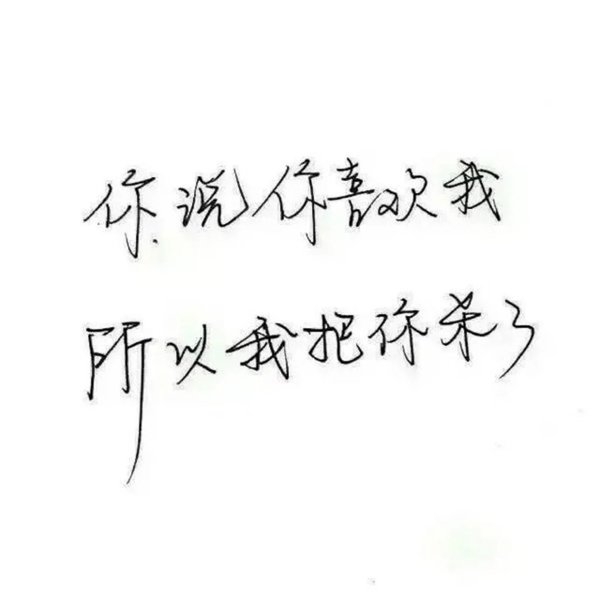 你说你喜欢我
所以我把你杀了